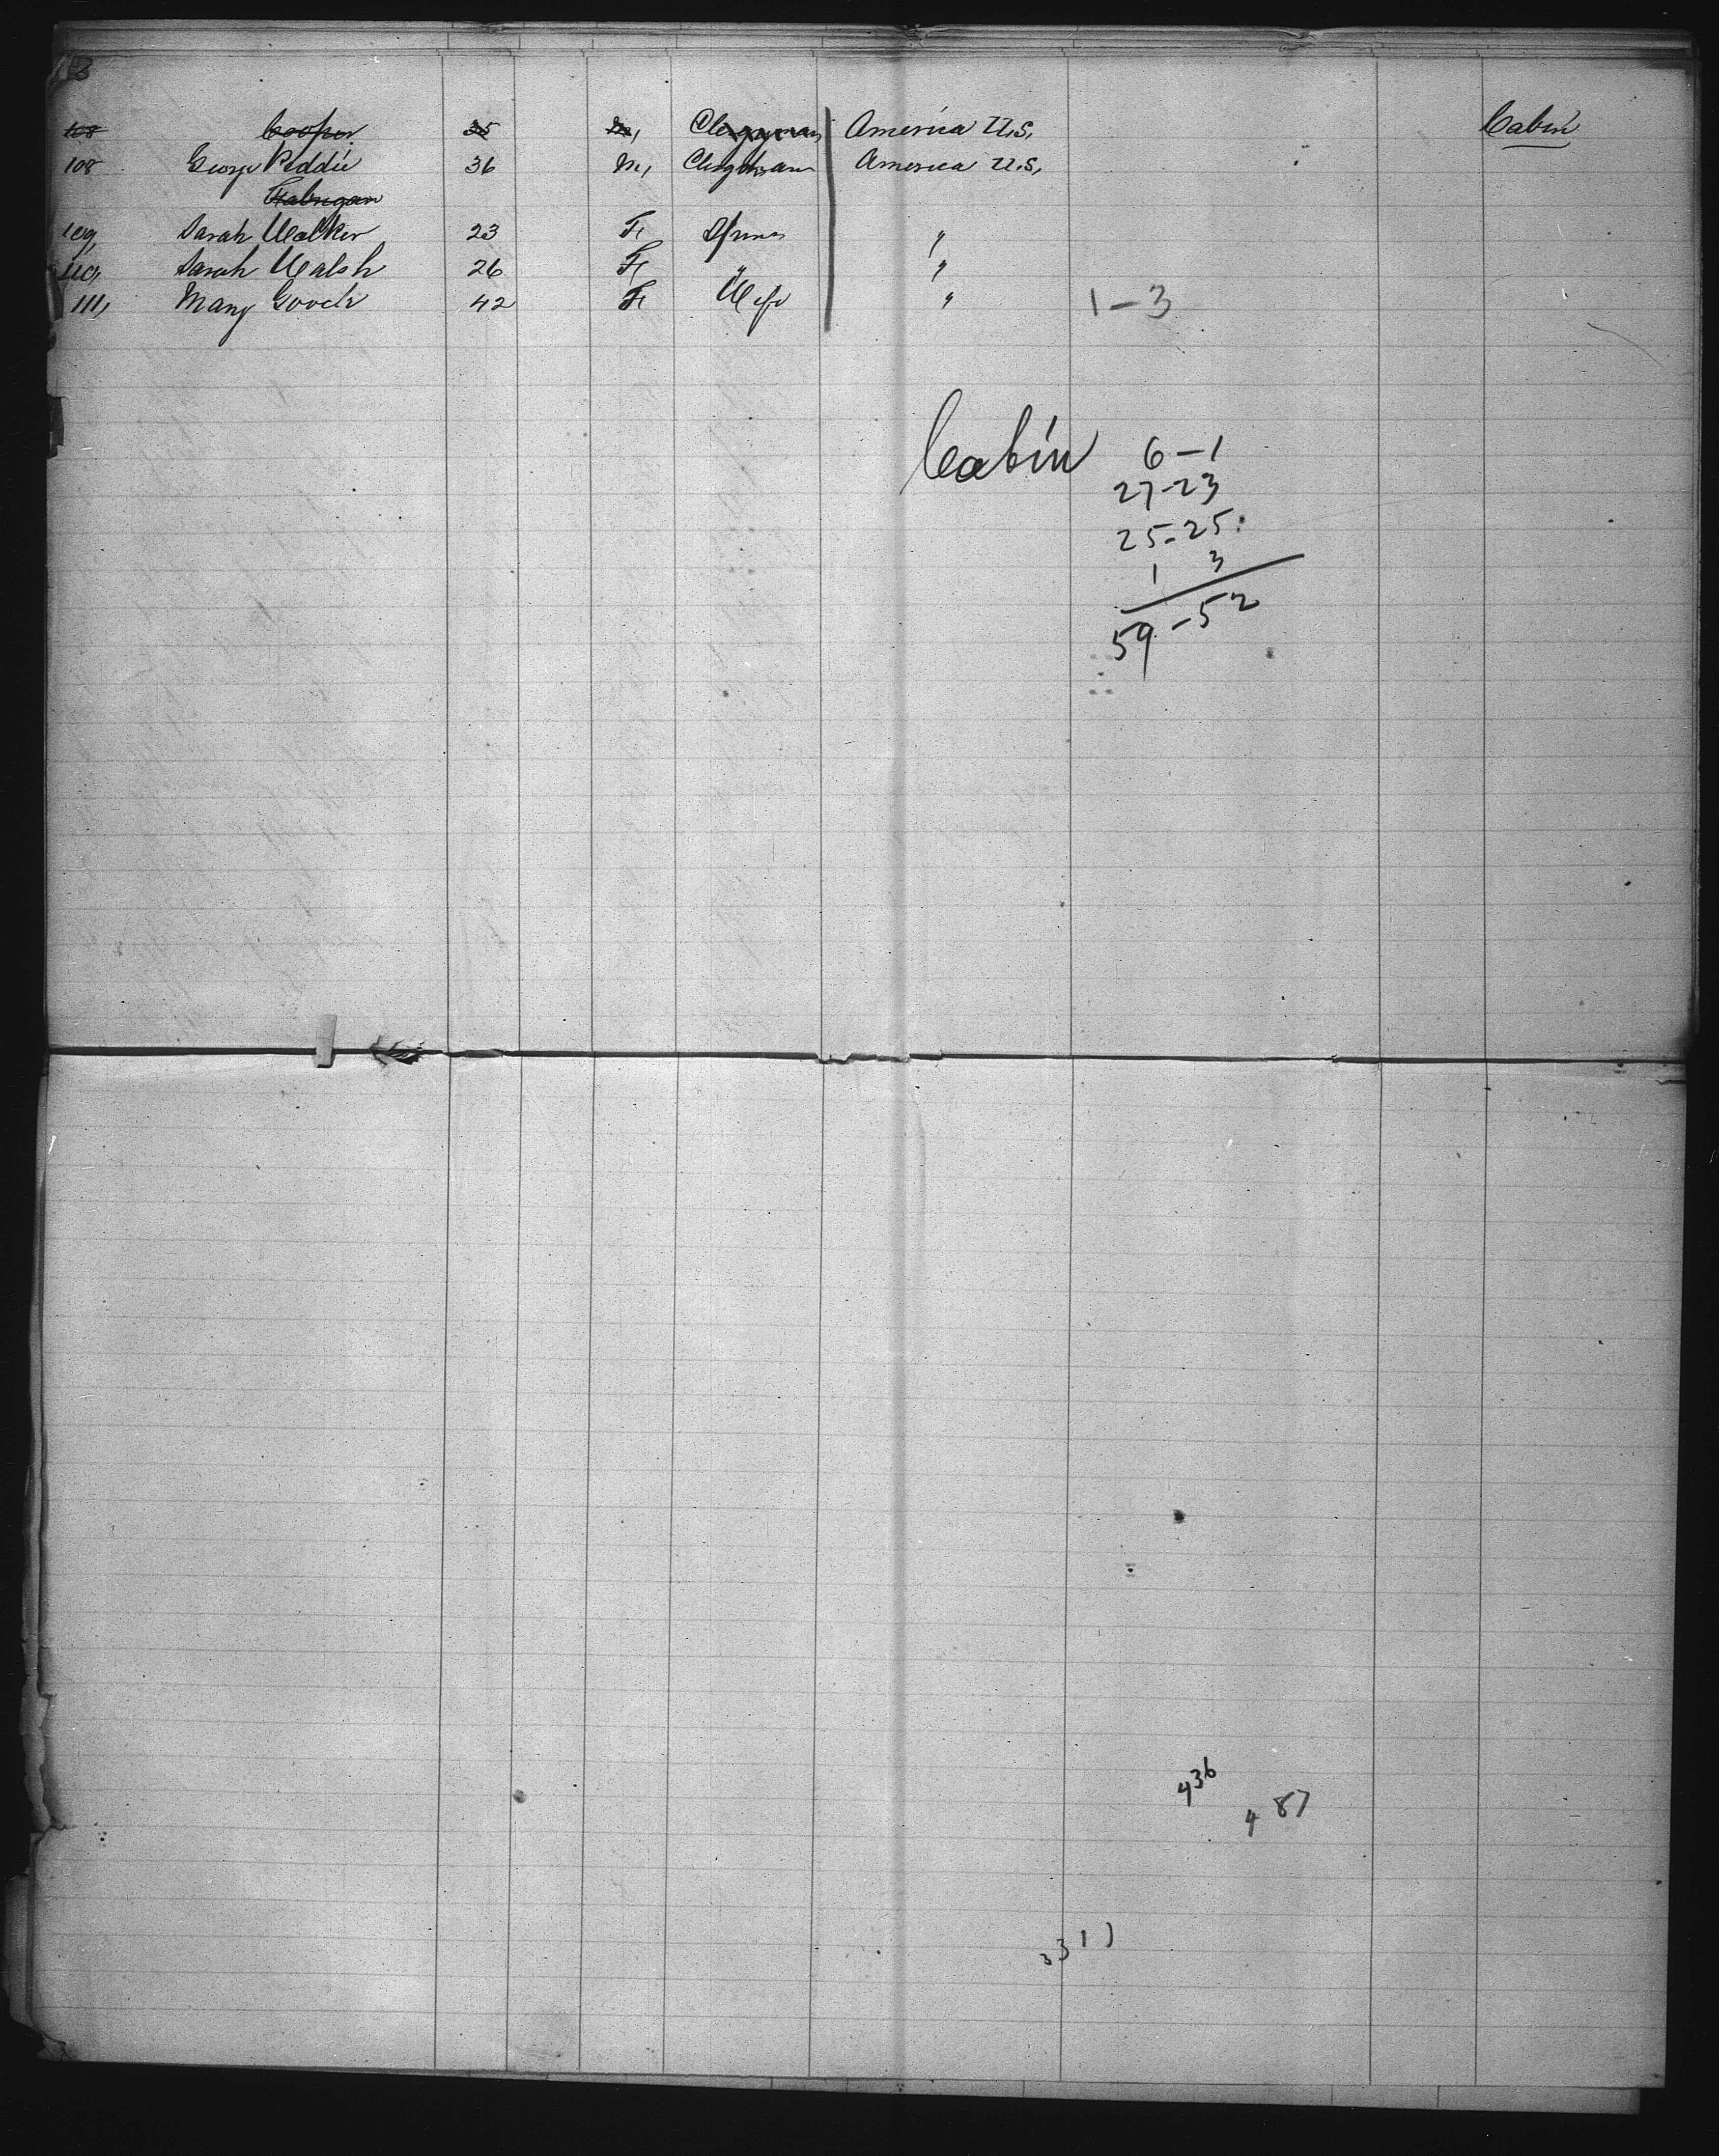 3
108 Cooper 35 M, Clergyman America U.S. Cabin
108 George Peddie 36 M, Clergyman America U.S.
109, Sarah Walker 23 F, Spins "
110, Sarah Walsh 26 F, " "
111, Mary Gooch 42 F, Wife " 1-3
Cabin 6-1
27-23
25-25
1 3
59-52
436
487
331